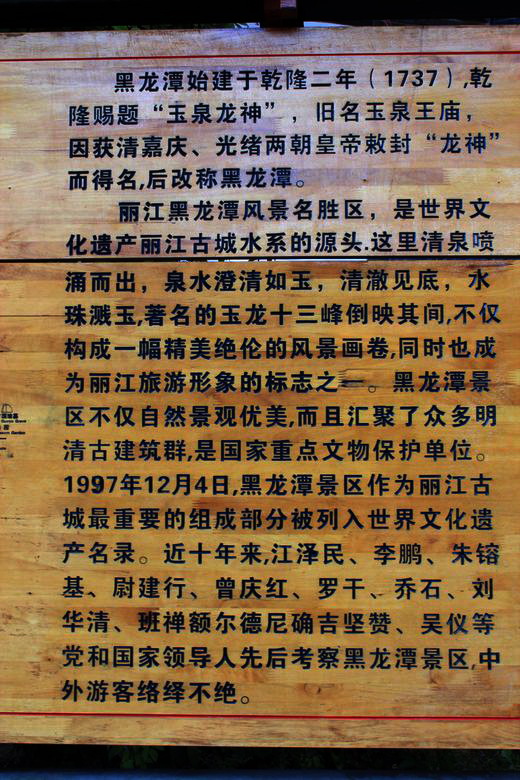 黑龙潭始建于乾隆二年(1737),乾
隆赐题“玉泉龙神”，旧名玉泉王庙，
因获清嘉庆、光绪两朝皇帝敕封“龙神”
而得名,后改称黑龙潭。
丽江黑龙潭风景名胜区，是世界文
化遗产丽江古城水系的源头.这里清泉喷
涌而出，泉水澄清如玉，清澈见底，水
珠溅玉,著名的玉龙十三峰倒映其间,不仅
构成一幅精美绝伦的风景画卷,同时也成
为丽江旅游形象的标志之一。黑龙潭景
区不仅自然景观优美,而且汇聚了众多明
清古建筑群,是国家重点文物保护单位。
1997年12月4日,黑龙潭景区作为丽江古
城最重要的组成部分被列入世界文化遗
产名录。近十年来,江泽民、李鹏、朱镕
基、尉建行、曾庆红、罗干、乔石、刘
华清、班禅额尔德尼确吉坚赞、吴仪等
党和国家领导人先后考察黑龙潭景区,中
外游客络绎不绝。